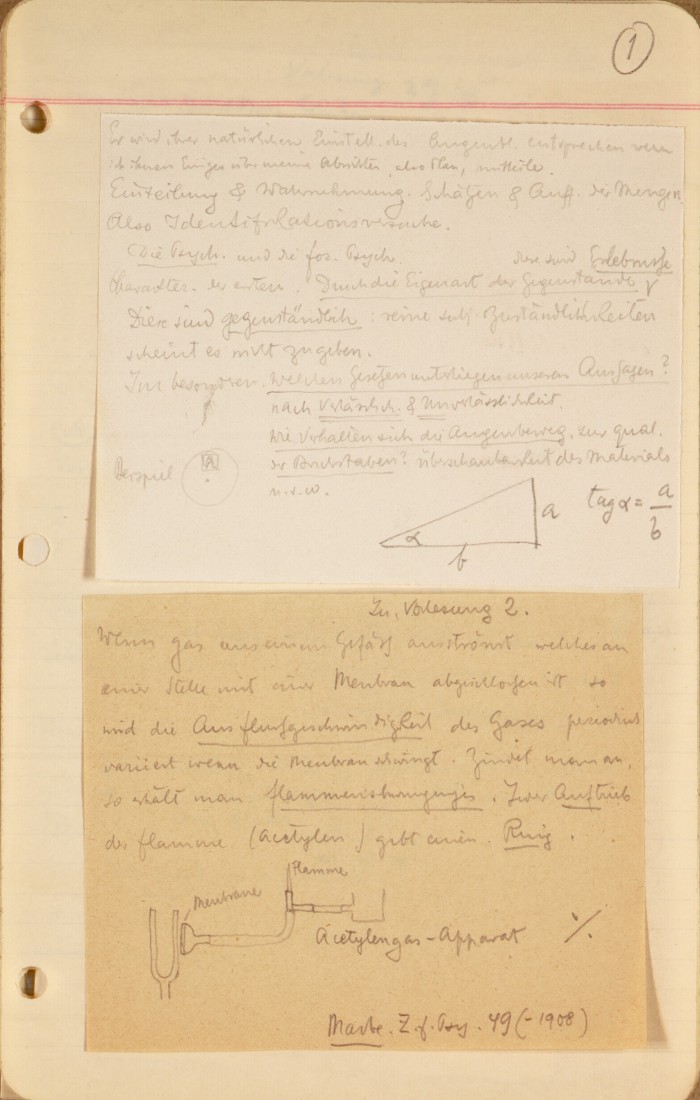 1
Es wird Ihrer natürlichen Einstell. des Augenbl. entsprechen wenn
ich ihnen Einiges über meine Absichten, also Plan, mitteile.
Einteilung & Wahrnehmung. Schätzen & Auff. der Mengen
Also Identifikationsversuche.
Die Psych. und die fos. Psych. diese sind Erlebnisse
Charakter. der ersten. Durch die Eigenart der Gegenstände
Diese sind gegenständlich: reine subj. Zuständlichkeiten
scheint es nicht zu geben.
Im besonderen. Welchen Gesetzen unterliegen unseren Aussagen?
nach Verlässlich. & Unverlässlichkeit.
Wie Verhalten sich die Augenbeweg. zur qual.
der Buchstaben? Überschaubarkeit des Materials
u.s.w.
Beispiel A
α a b tag α = a/b
Zu Vorlesung 2.
Wenn gas aus einem Gefäß ausströmt welches an
einer Stelle mit einer Membran abgeschlossen ist so
wird die Ausflussgeschwindigkeit des Gases periodisch
variiert wenn die Membran schwingt. Zündet man an,
so erhält man . Jeder Auftrieb
der flamme (Acetylen) gibt einen Ring.
Flamme
Membrane
Acetylengas-Apparat ./.
Marbe. Z. f. Psy. 49 (-1908)